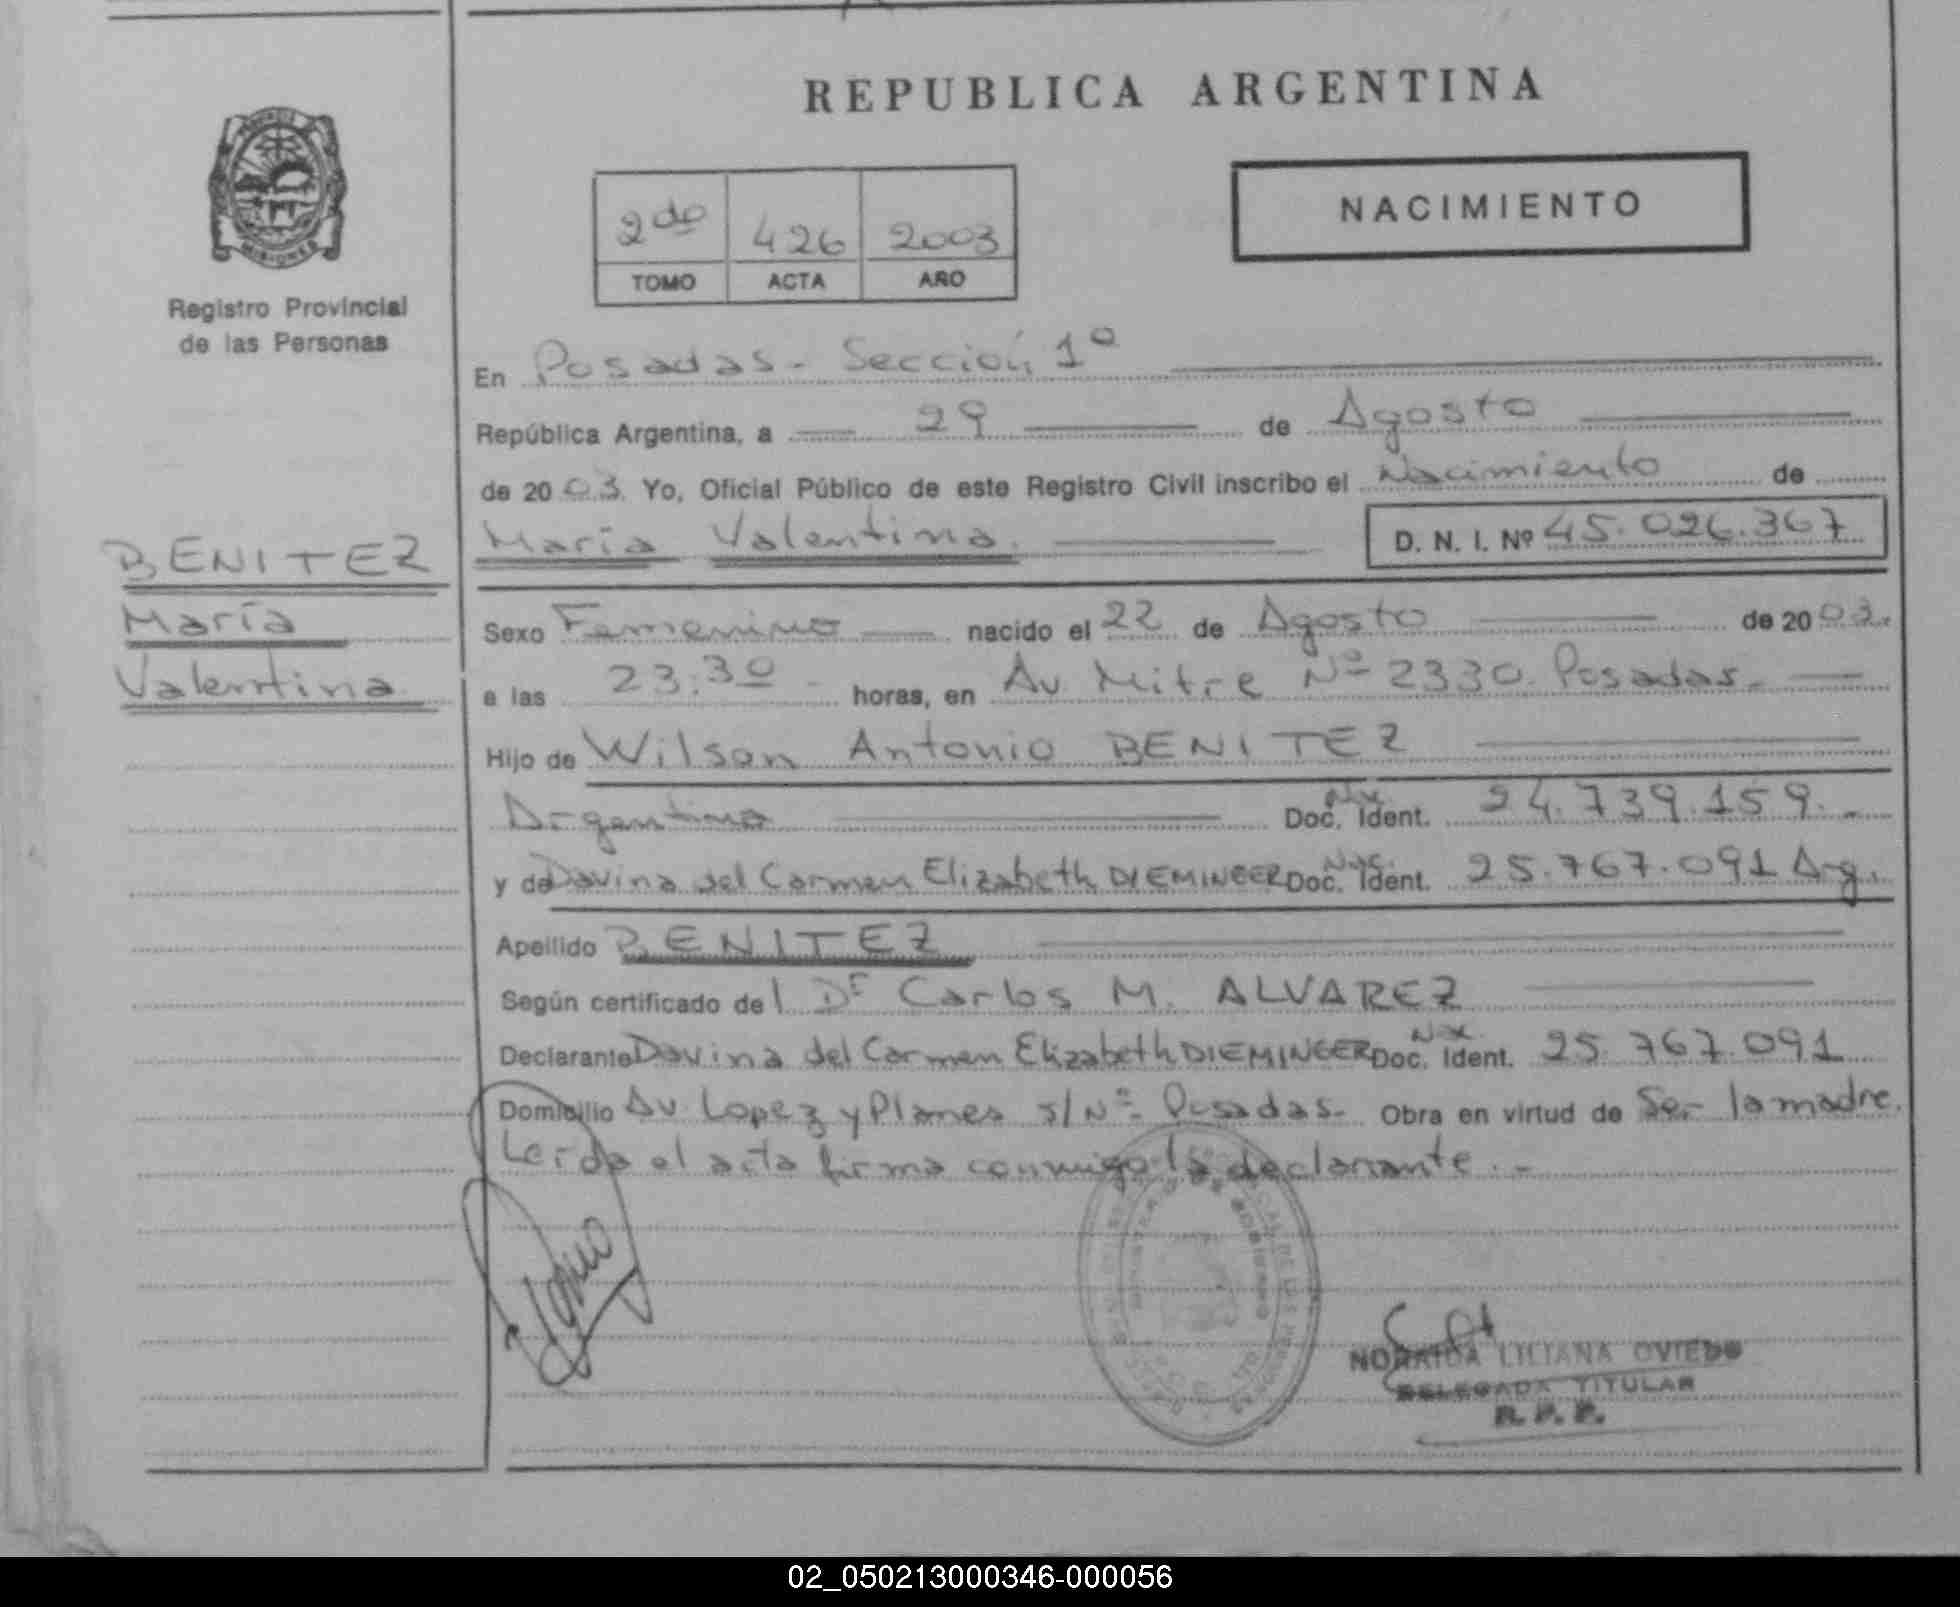 REPUBLICA ARGENTINA
NACIMIENTO
2do 426 2003
TOMO ACTA AÑO
MISIONES
Registro Provincial
de las Personas
En Posadas - Sección 1º
República Argentina, a 29 de Agosto
de 20 03. Yo, Oficial Público de este Registro Civil inscribo el Nacimiento de
María Valentina. D. N. I. Nº 45.026.367
BENITEZ
María
Valentina
Sexo Femenino nacido el 22 de Agosto de 20 03.
a las 23:30 - horas, en Av. Mitre Nº 2330 Posadas -
Hijo de Wilson Antonio BENITEZ
Argentino Nac. Doc. Ident. 24.739.159. -
y de Davina del Carmen Elizabeth DIEMINGER Nac. Doc. Ident. 25.767.091 Arg.
Apellido BENITEZ
Según certificado del Dr Carlos M. ALVAREZ
Declarante Davina del Carmen Elizabeth DIEMINGER Nac. Doc. Ident. 25.767.091
Domicilio Av. Lopez y Planes s/Nº - Posadas - Obra en virtud de Ser la madre.
Leída el acta firma conmigo la declarante. -
NORAIDA LILIANA OVIEDO
DELEGADA TITULAR
R. P. P.
02_050213000346-000056